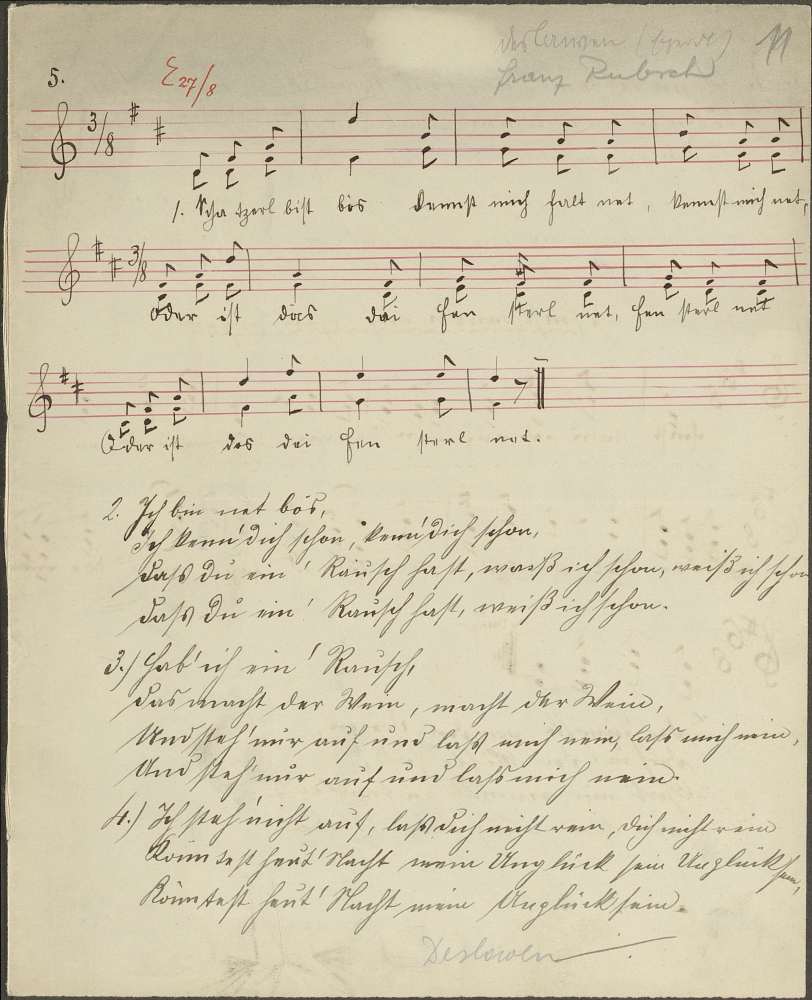 11
Franz Rubesch
5.
E 27/8
3/8
1. Schatzerl bist bös kennst mich halt net, kennst mich net,
3/8
Oder ist das dei Fensterl net, Fensterl net
Oder ist des dei Fensterl net.
2. Ich bin net bös,
Ich kenn' dich schon, kenn' dich schon,
Dass du ein' Räusch hast, waß ich schon, weiß ich schon
Dass du ein' Rausch hast, weiß ich schon.
3.) Hab' ich ein' Rausch,
Das macht der Wein, macht der Wein,
Und steh' nur auf und lass mich nein, lass mich nein,
Und steh' nur auf und lass mich nein.
4.) Ich steh' nicht auf, laß dich nicht rein, dich nicht rein
Könntest heut' Nacht mein Unglück sein Unglück sein,
Könntest heut' Nacht mein Unglück sein.
Deslawen